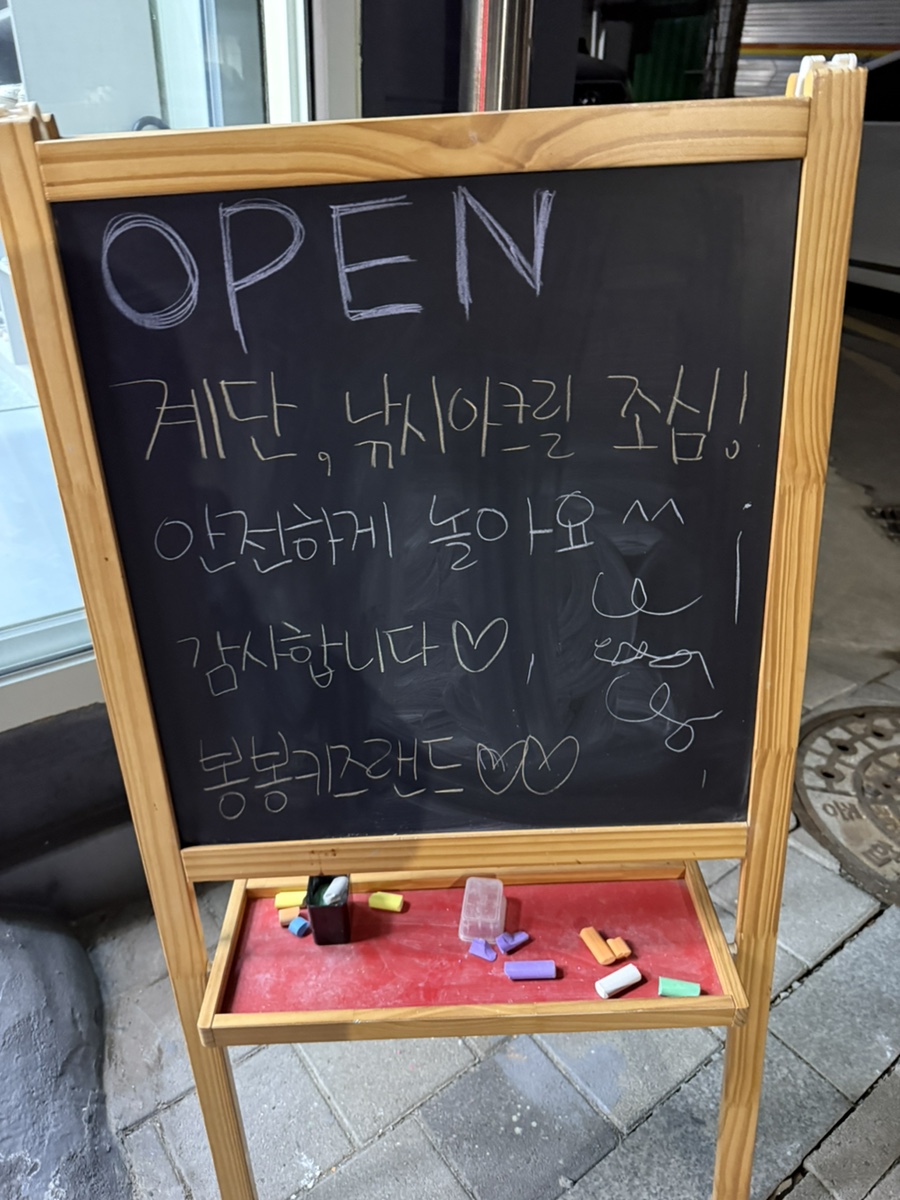 OPEN
계단, 낚시아크릴 조심!
안전하게 놀아요 ^^
감사합니다 ♡
봉봉키즈랜드 ♡♡